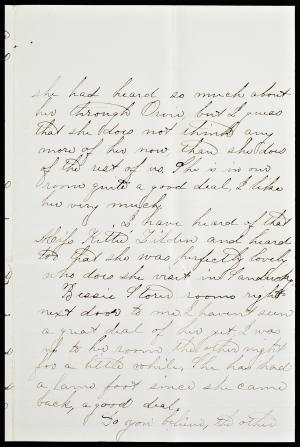 she had heard so much about
her through Orin, but I guess
that she does not think any
more of her now, than she does
of the rest of us. She is in our
room quite a good deal, I like
her very much.
I have heard of that
Miss Kittie Tilden and heard
too that she was perfectly lovely
who does she visit in Sandwich,
Bessie Stone rooms right
next door to me, I haven't seen
a great deal of her yet I was
up to her room the other night
for a little while, She has had
a lame foot since she came
back, a good deal.
Do you believe, the other